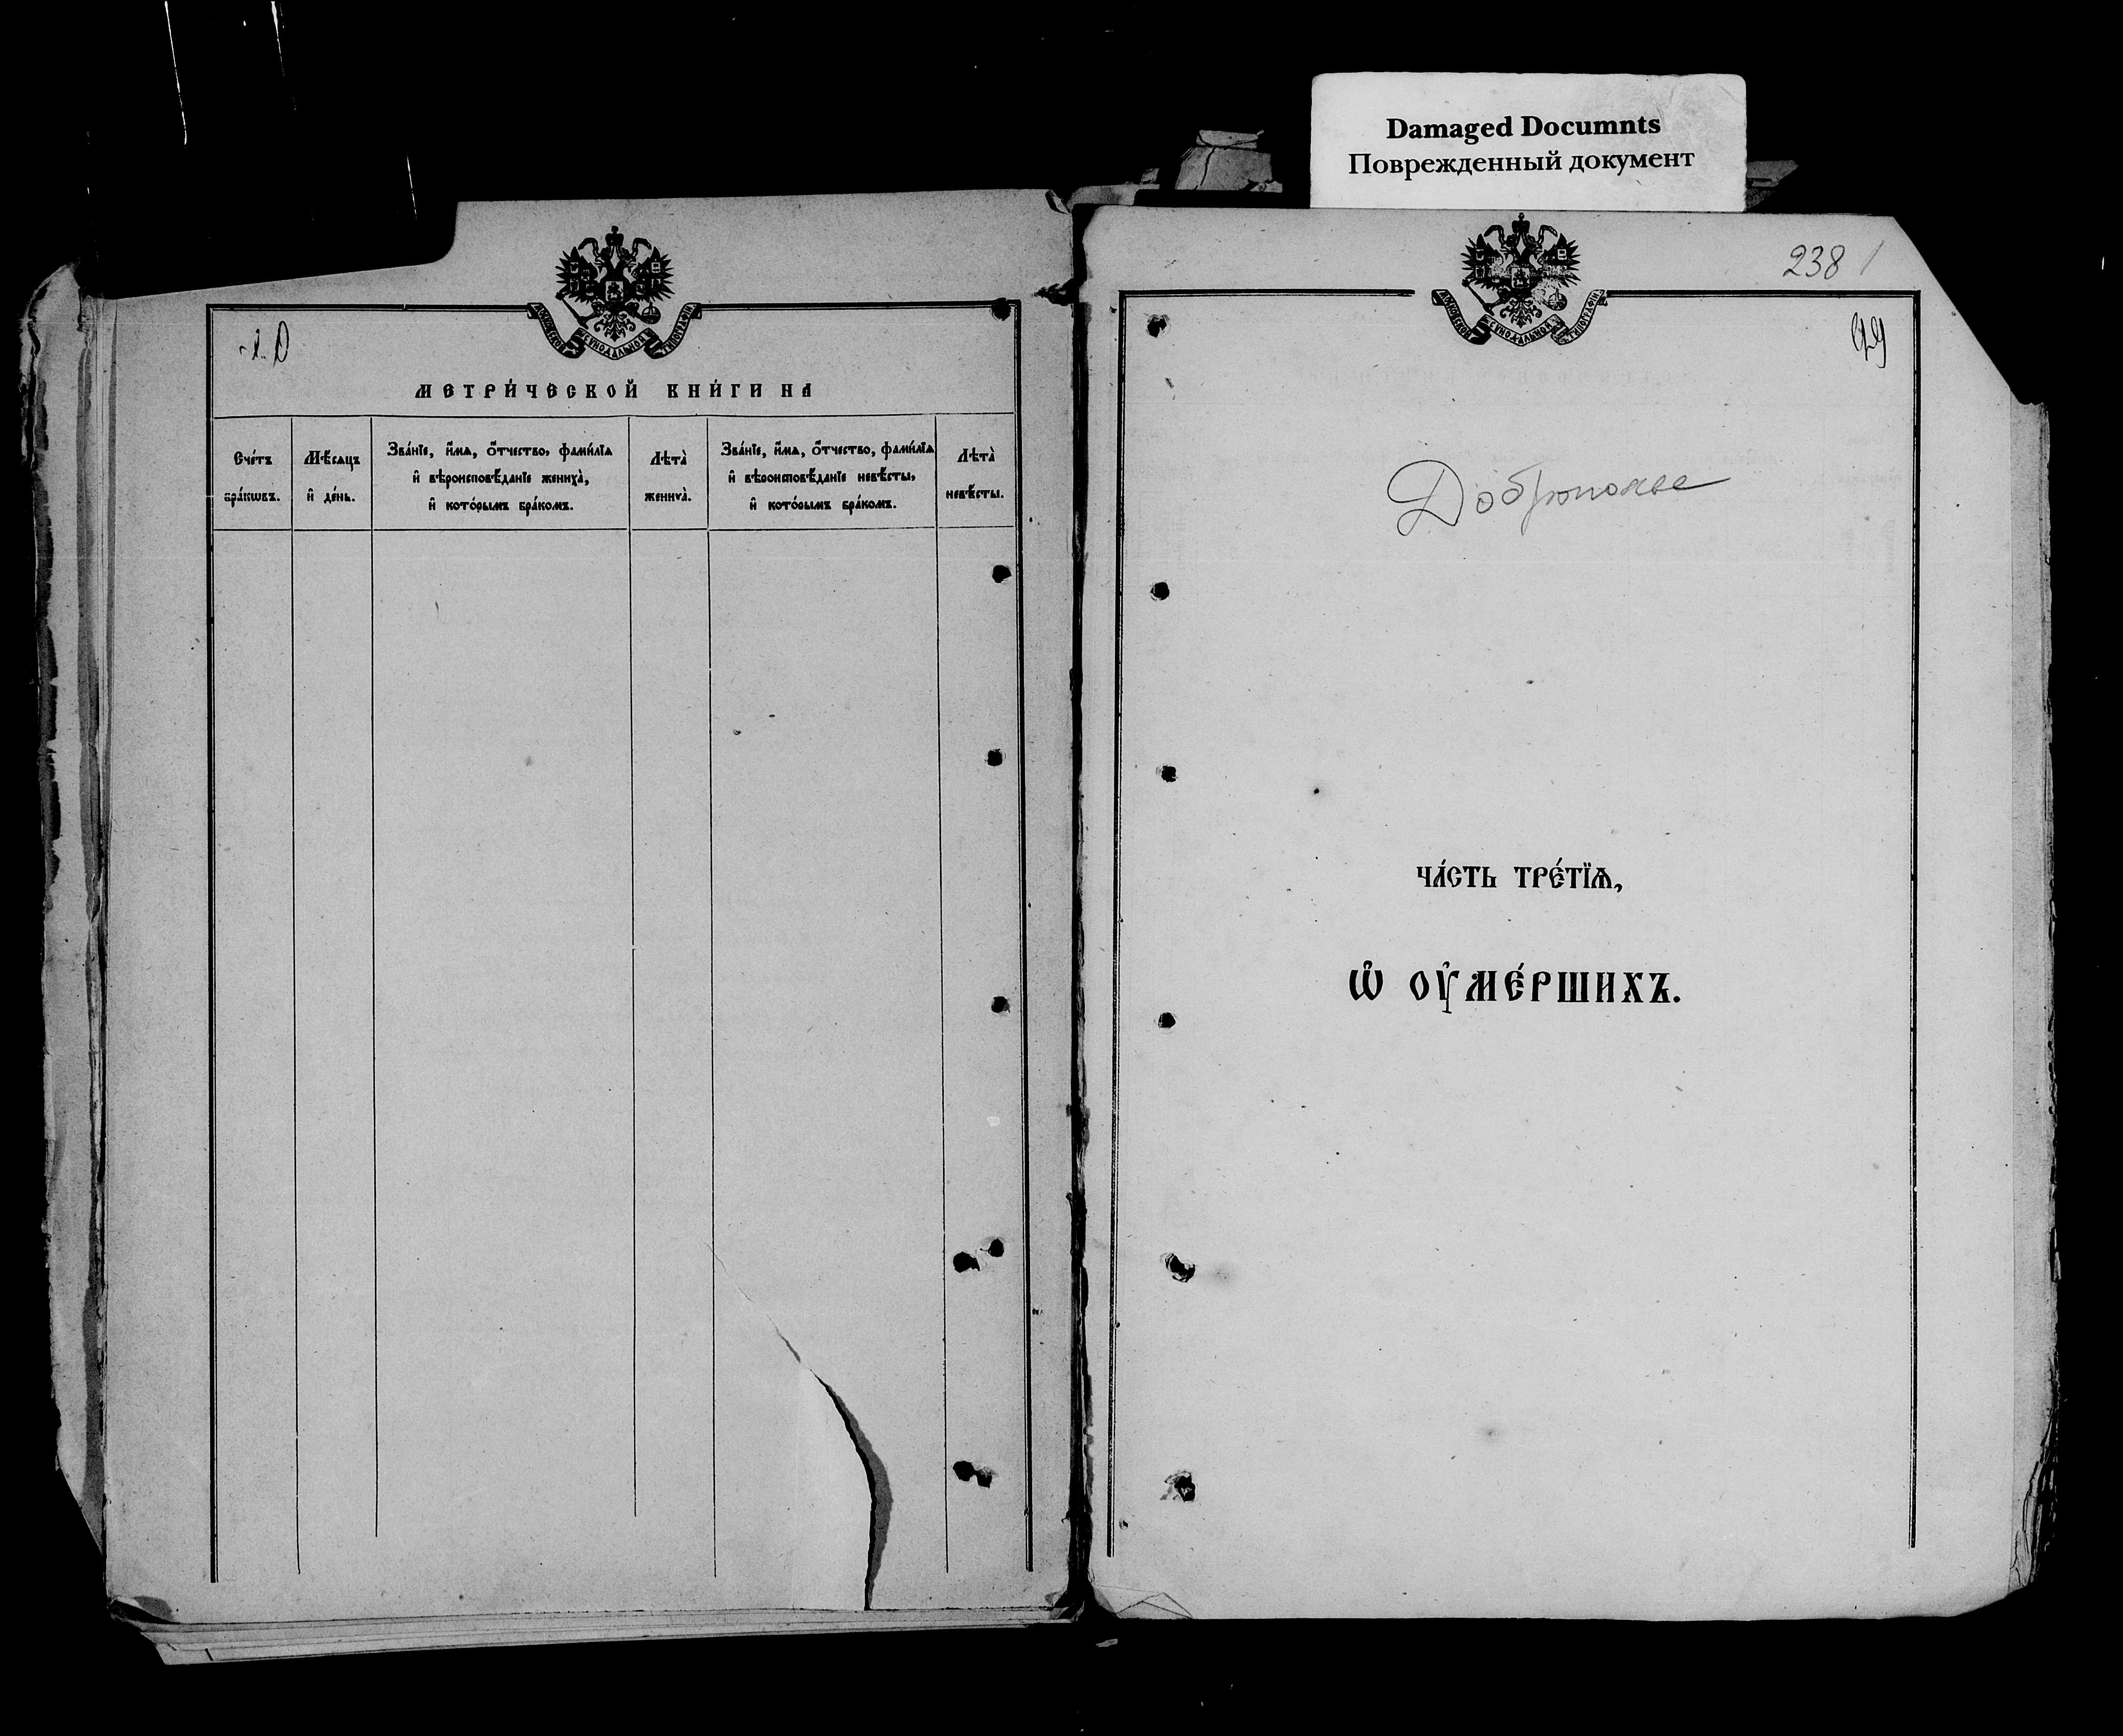 Damaged Documnts
Поврежденный документ
МОСКОВСКОЙ СУНОДАЛЬНОЙ ТИПОГРАФІИ
МЕТРИ́ЧЕСКОЙ КНИ́ГИ НА
Сче́тъ бра́кѡвъ.
Мѣ́сяцъ и҆ де́нь.
Зва́нїе, и҆́мѧ, ѻ҆́тчество, фами́лїѧ
и҆ вѣроисповѣ́данїе жениха̀,
и҆ кото́рымъ бра́комъ.
Лѣта̀ жениха̀.
Зва́нїе, и҆́мѧ, ѻ҆́тчество, фами́лїѧ
и҆ вѣроисповѣ́данїе невѣ́сты,
и҆ кото́рымъ бра́комъ.
Лѣта̀ невѣ́сты.
238
МОСКОВСКОЙ СУНОДАЛЬНОЙ ТИПОГРАФІИ
99
Доброполье
ЧА́СТЬ ТРЕ́ТЇѦ,
Ѡ҆ ОУ҆МЕ́РШИХЪ.